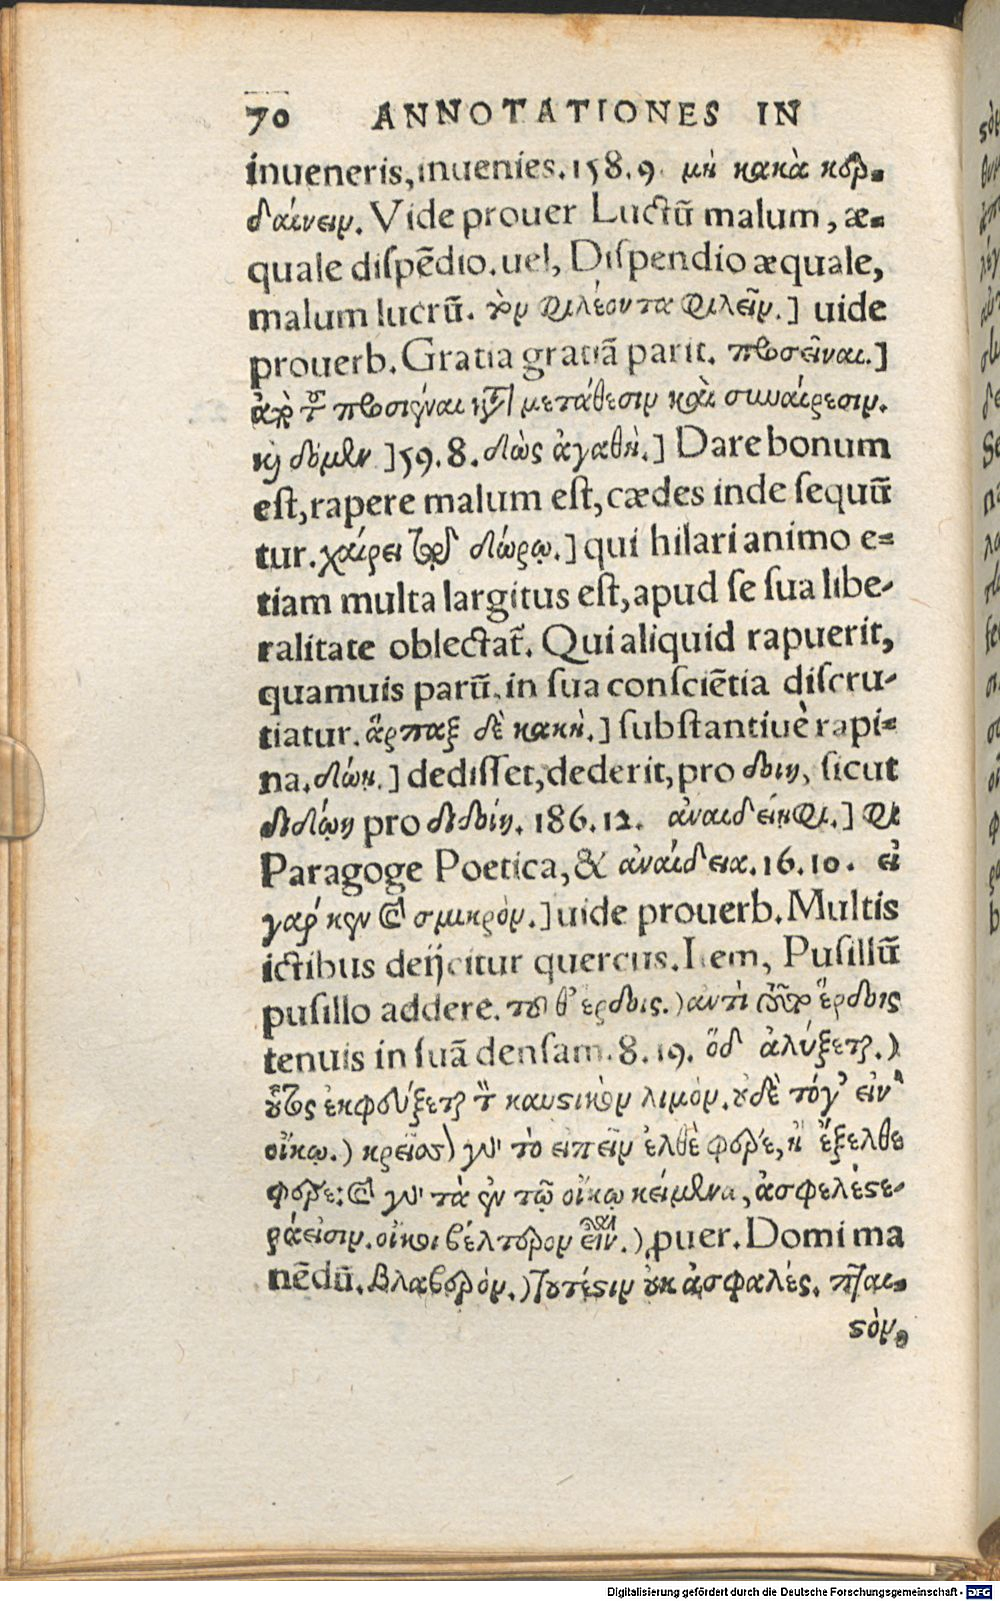 70 ANNOTATIONES IN
inueneris, inuenies. 158.9. μὴ κακὰ κερ-
δαίνειν. Vide prouer Luctū malum, æ-
quale dispēdio. uel, Dispendio æquale,
malum lucrū. τὸν φιλέοντα φιλεῖν.] uide
prouerb. Gratia gratiā parit. προσεῖναι.]
μετάθεσιν καὶ συναίρεσιν.
]59.8. δὼς ἀγαθὴ.] Dare bonum
est, rapere malum est, cædes inde sequū
tur. χαίρει τῷ δώρῳ.] qui hilari animo e-
tiam multa largitus est, apud se sua libe-
ralitate oblectat̄. Qui aliquid rapuerit,
quamuis parū, in sua consciētia discru-
tiatur. ἅρπαξ δὲ κακὴ.] substantiuè rapi-
na. δώῃ.] dedisset, dederit, pro δοίη, sicut
διδῴη pro διδοίη. 186.12. ἀναιδείηφι.] φι
Paragoge Poetica, & ἀναίδεια. 16.10. εἰ
γάρ κεν καὶ σμικρὸν.] uide prouerb. Multis
ictibus deijcitur quercus. Item, Pusillū
pusillo addere. τοῦθ' ἔρδοις.) αντὶ τοῦτο ἔρδοις
tenuis in suā densam. 8.19. ὅδ' ἀλύξεται.)
οὗτος ἐκφεύξεται τ̄ καυστικὸν λιμὸν. οὐδὲ τόγ' εἰν
οἴκῳ.) κρεῖοσ) γὰρ τὸ εἰπεῖν ἐλθὲ φέρε, ἢ ἔξελθε
φέρε: καὶ γὰρ τὰ ἐν τῷ οἴκῳ κείμενα, ἀσφελέστε-
ρά εἰσιν. οἴκοι βέλτερον εἶναι.) puer. Domi ma
nēdū. βλαβερὸν.) τουτέστιν οὐκ ἀσφαλές. πται-
στὸν.
Digitalisierung gefördert durch die Deutsche Forschungsgemeinschaft - DFG